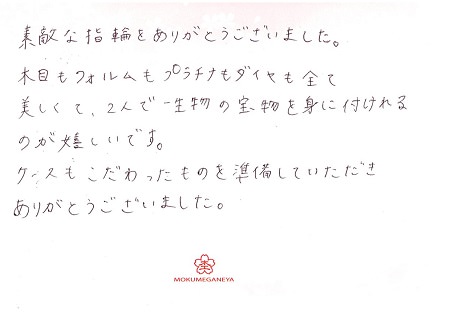 素敵な指輪をありがとうございました。
木目もフォルムもプラチナもダイヤも全て
美しくて、2人で一生物の宝物を身に付けれる
のが嬉しいです。
ケースもこだわったものを準備していただき
ありがとうございました。
MOKUMEGANEYA